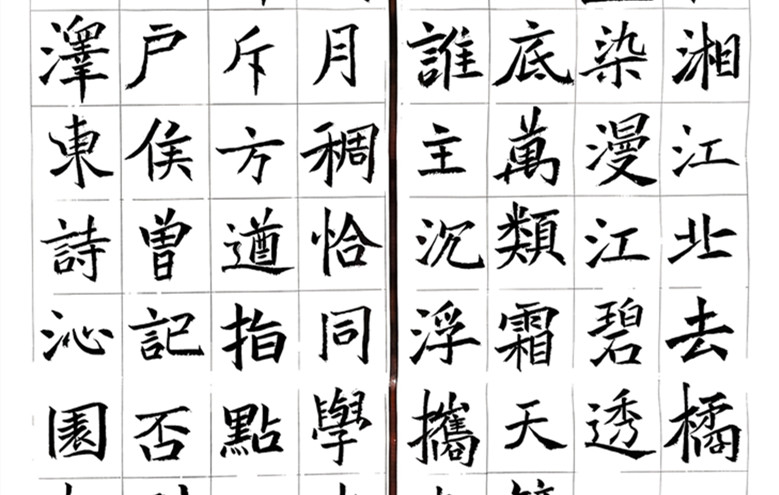 湘江北去橘
染漫江碧透
底萬類霜天
誰主沉浮攜
月稠恰同學
斥方遒指點
戶侯曾記否
澤東詩沁園